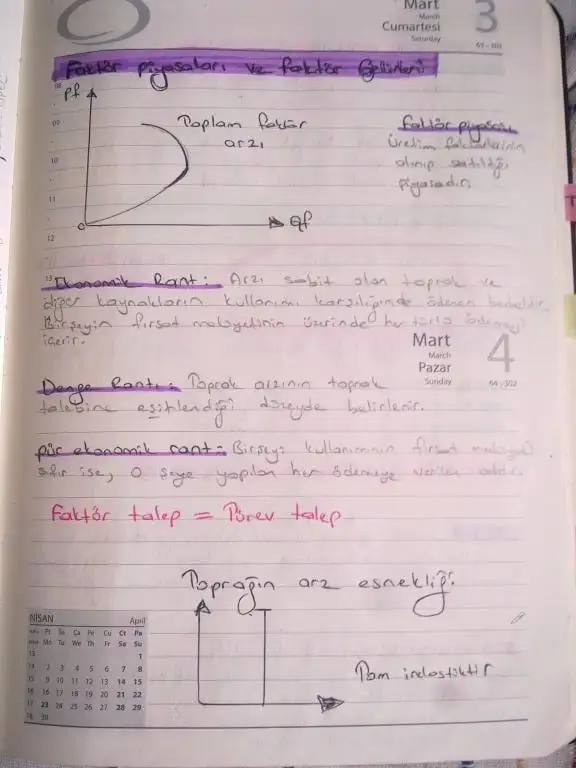 Mart
March
Cumartesi
Saturday
3
Faktör piyasaları ve faktör Gelirleri
08
Pf
09
Toplam faktör
arzı
faktör piyasası
üretim faktörlerinin
alınıp satıldığı
piyasadır.
10
11
0
Qf
12
13
Ekonomik Rant: Arzı sabit olan toprak ve
diğer kaynakların kullanımı karşılığında ödenen bedeldir.
Birşeyin fırsat maliyetinin üzerinde her türlü ödemeyi
içerir.
Mart
March
Pazar
Sunday
4
64 - 302
Denge Rantı: Toprak arzının toprak
talebine eşitlendiği düzeyde belirlenir.
pür ekonomik rant: Birşeyi kullanımının fırsat maliyeti
sıfır ise, o şeye yapılan her ödemeye verilen addır.
Faktör talep = Türev talep
Toprağın arz esnekliği
Tam inelastiktir
NİSAN April
Pt Sa Ça Pe Cu Ct Pa
Mo Tu We Th Fr Sa Su
13 1
14 2 3 4 5 6 7 8
15 9 10 11 12 13 14 15
16 16 17 18 19 20 21 22
17 23 24 25 26 27 28 29
18 30